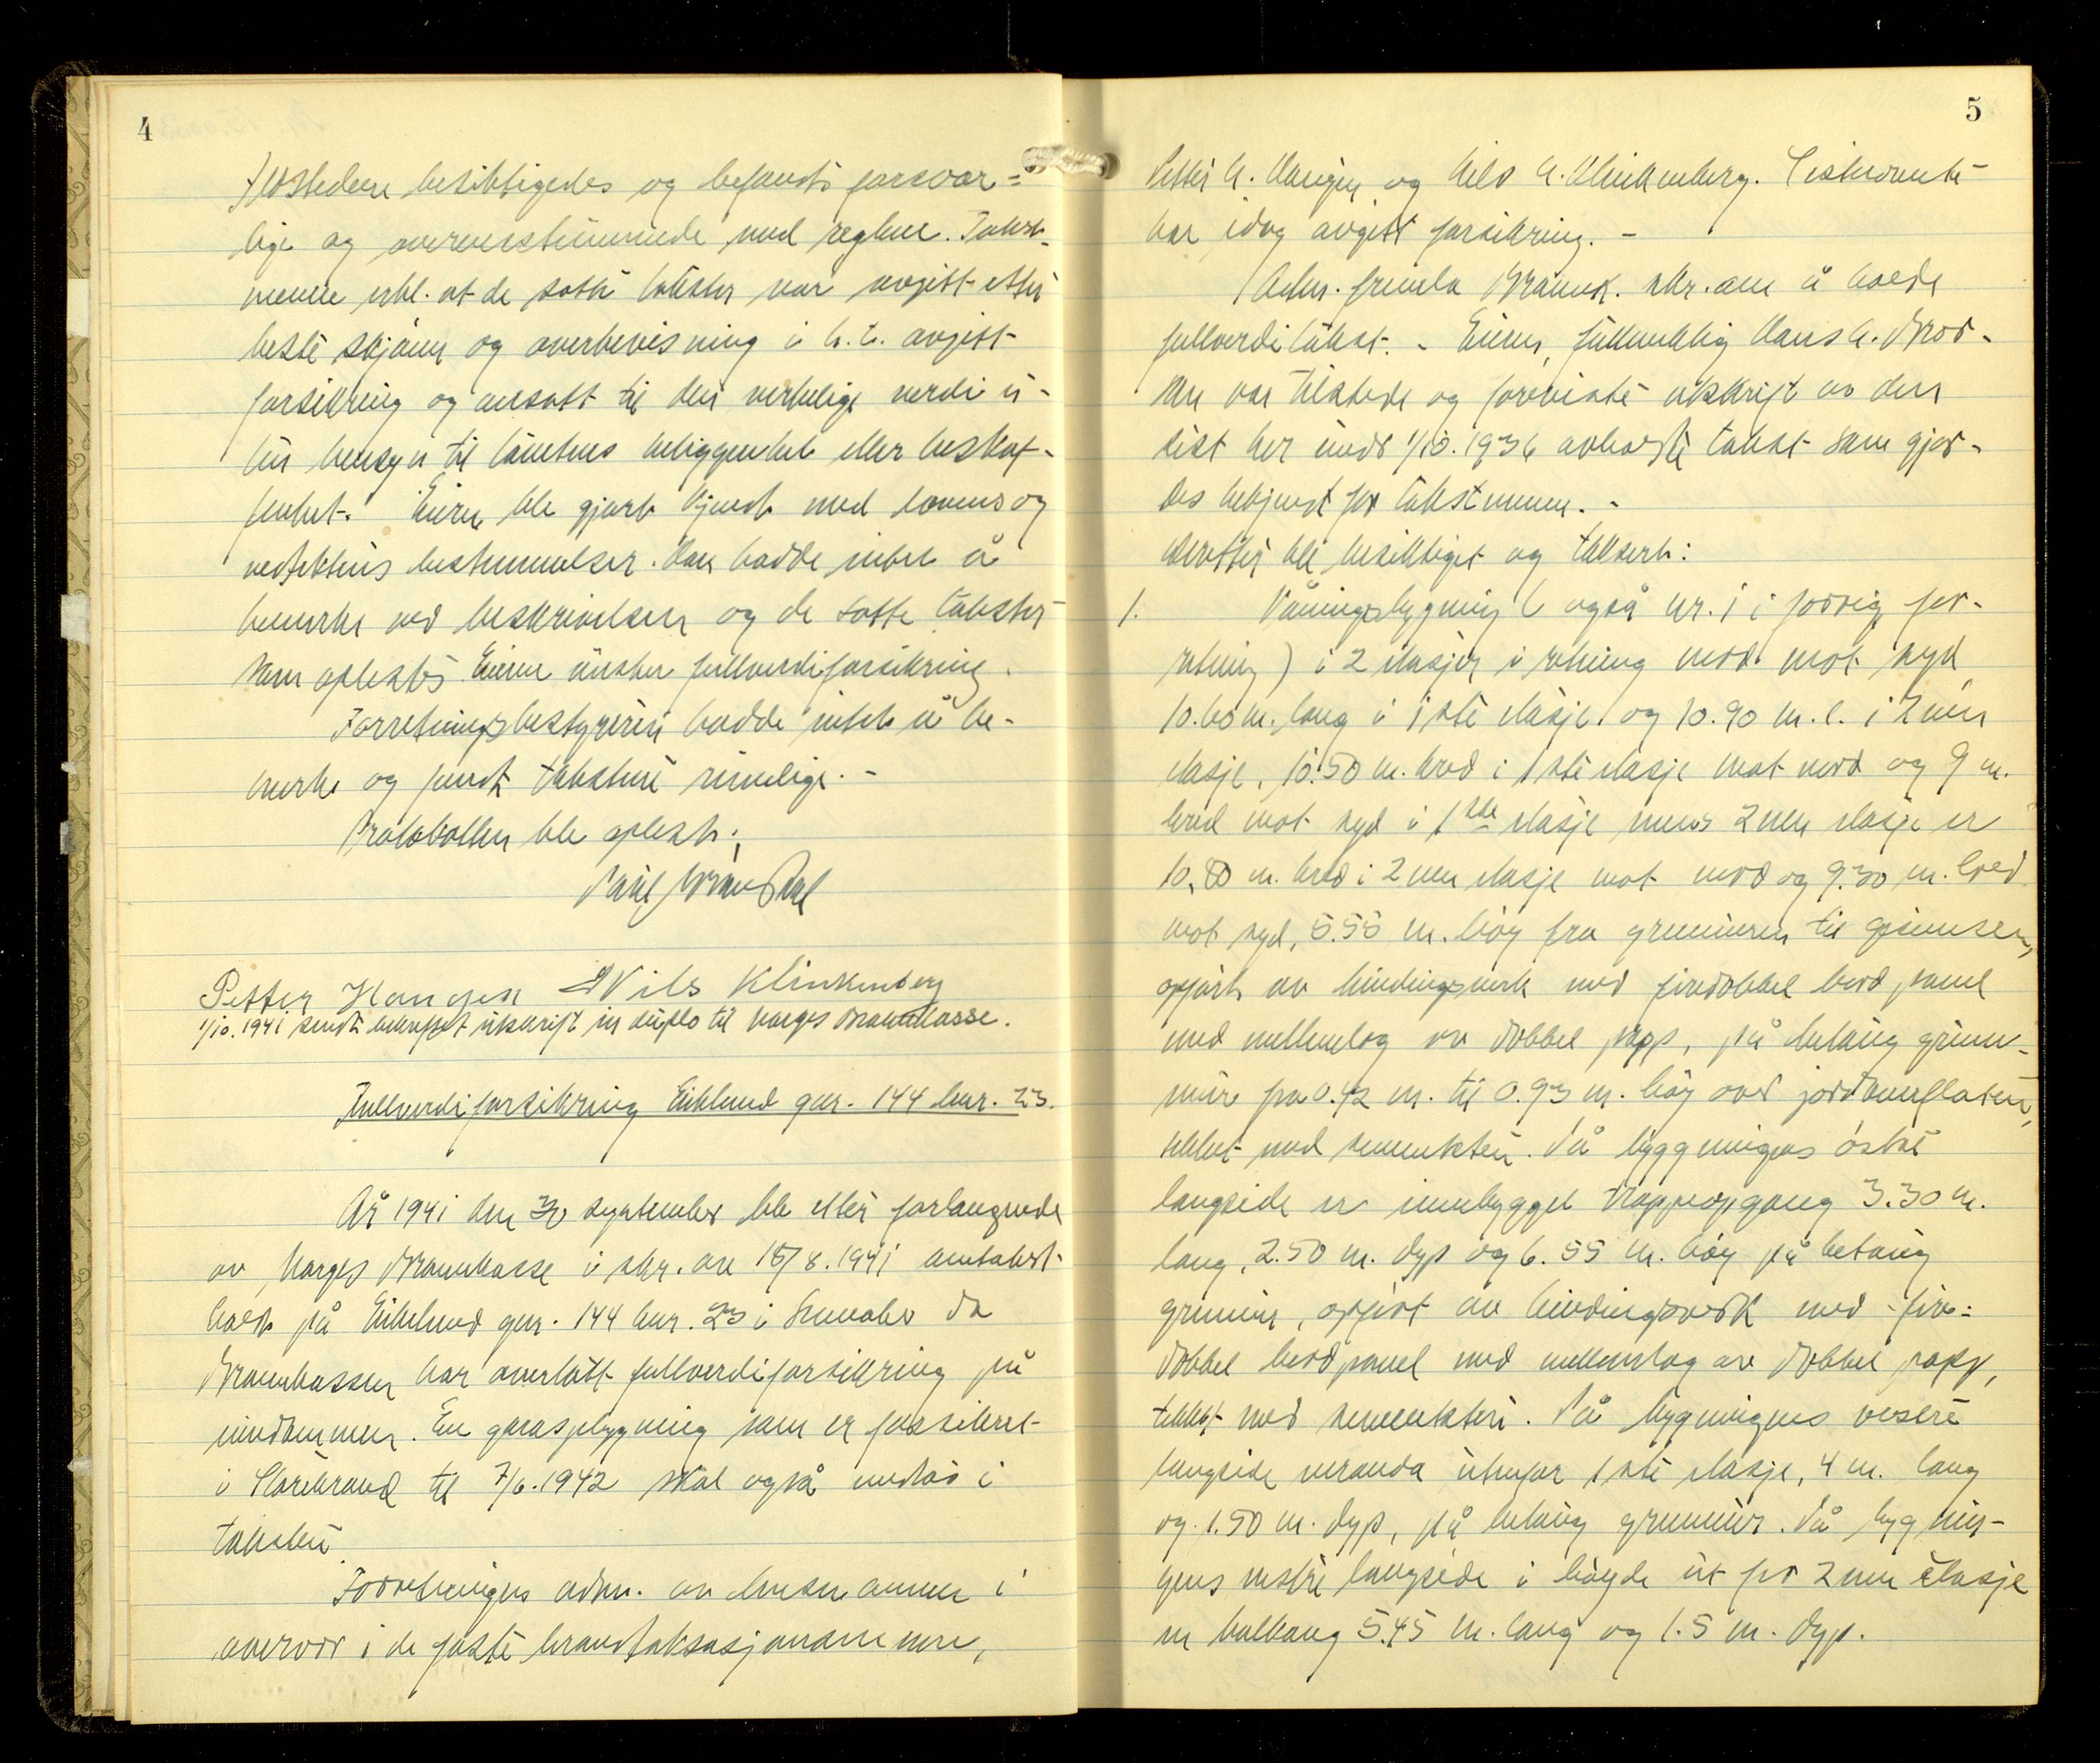 4
Ildstedene besiktigedes og befandtes forsvar=
lige og overensstemmende med reglene. Takst-
mennene erkl. at de satte takster var avgitt etter
beste skjønn og overbevisning i h. t. avgitt
forsikring og ansatt til den virkelige verdi u-
ten hensyn til tomtens beliggenhet eller beskaf-
fenhet. Eieren ble gjort kjendt med lovens og
vedtektens bestemmelser. Han hadde intet å
bemerke ved beskrivelsen og de satte takster
som oplestes. Eieren ønsker fullverdiforsikring.
Forretningsbestyreren hadde intet å be-
merke og fandt takstene rimelige. -
Protokollen ble oplest.
Petter Haugen Nils Klinkenberg
1/10. 1941 sendt bekreftet utskrift in duplo til Norges Brannkasse.
Fullverdiforsikring Eikelund gnr. 144 bnr. 23.
År 1941 den 30 september ble etter forlangende
av Norges Brannkasse i skr. av 18/8. 1941 omtakst
holdt på Eikelund gnr. 144 bnr. 23 i da
Brannkassen har overtatt fullverdiforsikring på
eiendommen. En garasjebygning som er forsikret
i Storebrand til 7/6. 1942 skal også medtas i
taksten.
Forretningen adm. av lensmannen i
overvær i de faste branntaksasjonsmenn,
5
Petter A. Haugen og Nils A. Klinkenberg. Sistnevnte
har idag avgitt forsikring. -
Adm. fremla Brannk. skr. om å holde
fullverditakst. - Eieren, fullmektig Hans A.
var tilstede og foreviste utskrift av den
sist her under 1/10. 1936 avholdte takst som gjor-
des bekjent for takstmennen. -
Derefter ble besiktiget og taksert:
1. Våningsbygning (også nr. 1 i forrige for-
retning) i 2 etasjer i retning nord mot syd
10.60 m. lang i 1ste etasje og 10.90 m. l. i 2nen
etasje, 10.50 m. bred i 1ste etasje mot nord og 9 m.
bred mot syd i 1ste etasje mens 2nen etasje er
10.80 m. bred i 2nen etasje mot nord og 9.30 m. bred
mot syd, 5.55 m. høy fra grunmuren til gesimsen,
opført av bindingsverk med firedobbel bord panel
med mellemlag av dobbel papp, på betong grunn-
mur fra 0.42 m. til 0.93 m. høy over jordoverflaten,
tekket med sementsten. På byggningens østre
langside er innebygget trappeopgang 3.30 m.
lang, 2.50 m. dyp og 6.55 m. høy på betong
grunmur, opført av bindingsverk med fire=
dobbel bordpanel med mellemlag av dobbel papp,
tekket med sementsten. På bygningens vestre
langside veranda utenfor 1ste etasje, 4 m. lang
og 1.50 m. dyp, på betong grunmur. På bygnin-
gens vestre langside i høyde ut for 2nen etasje
en balkong 5.45 m. lang og 1.5 m. dyp.